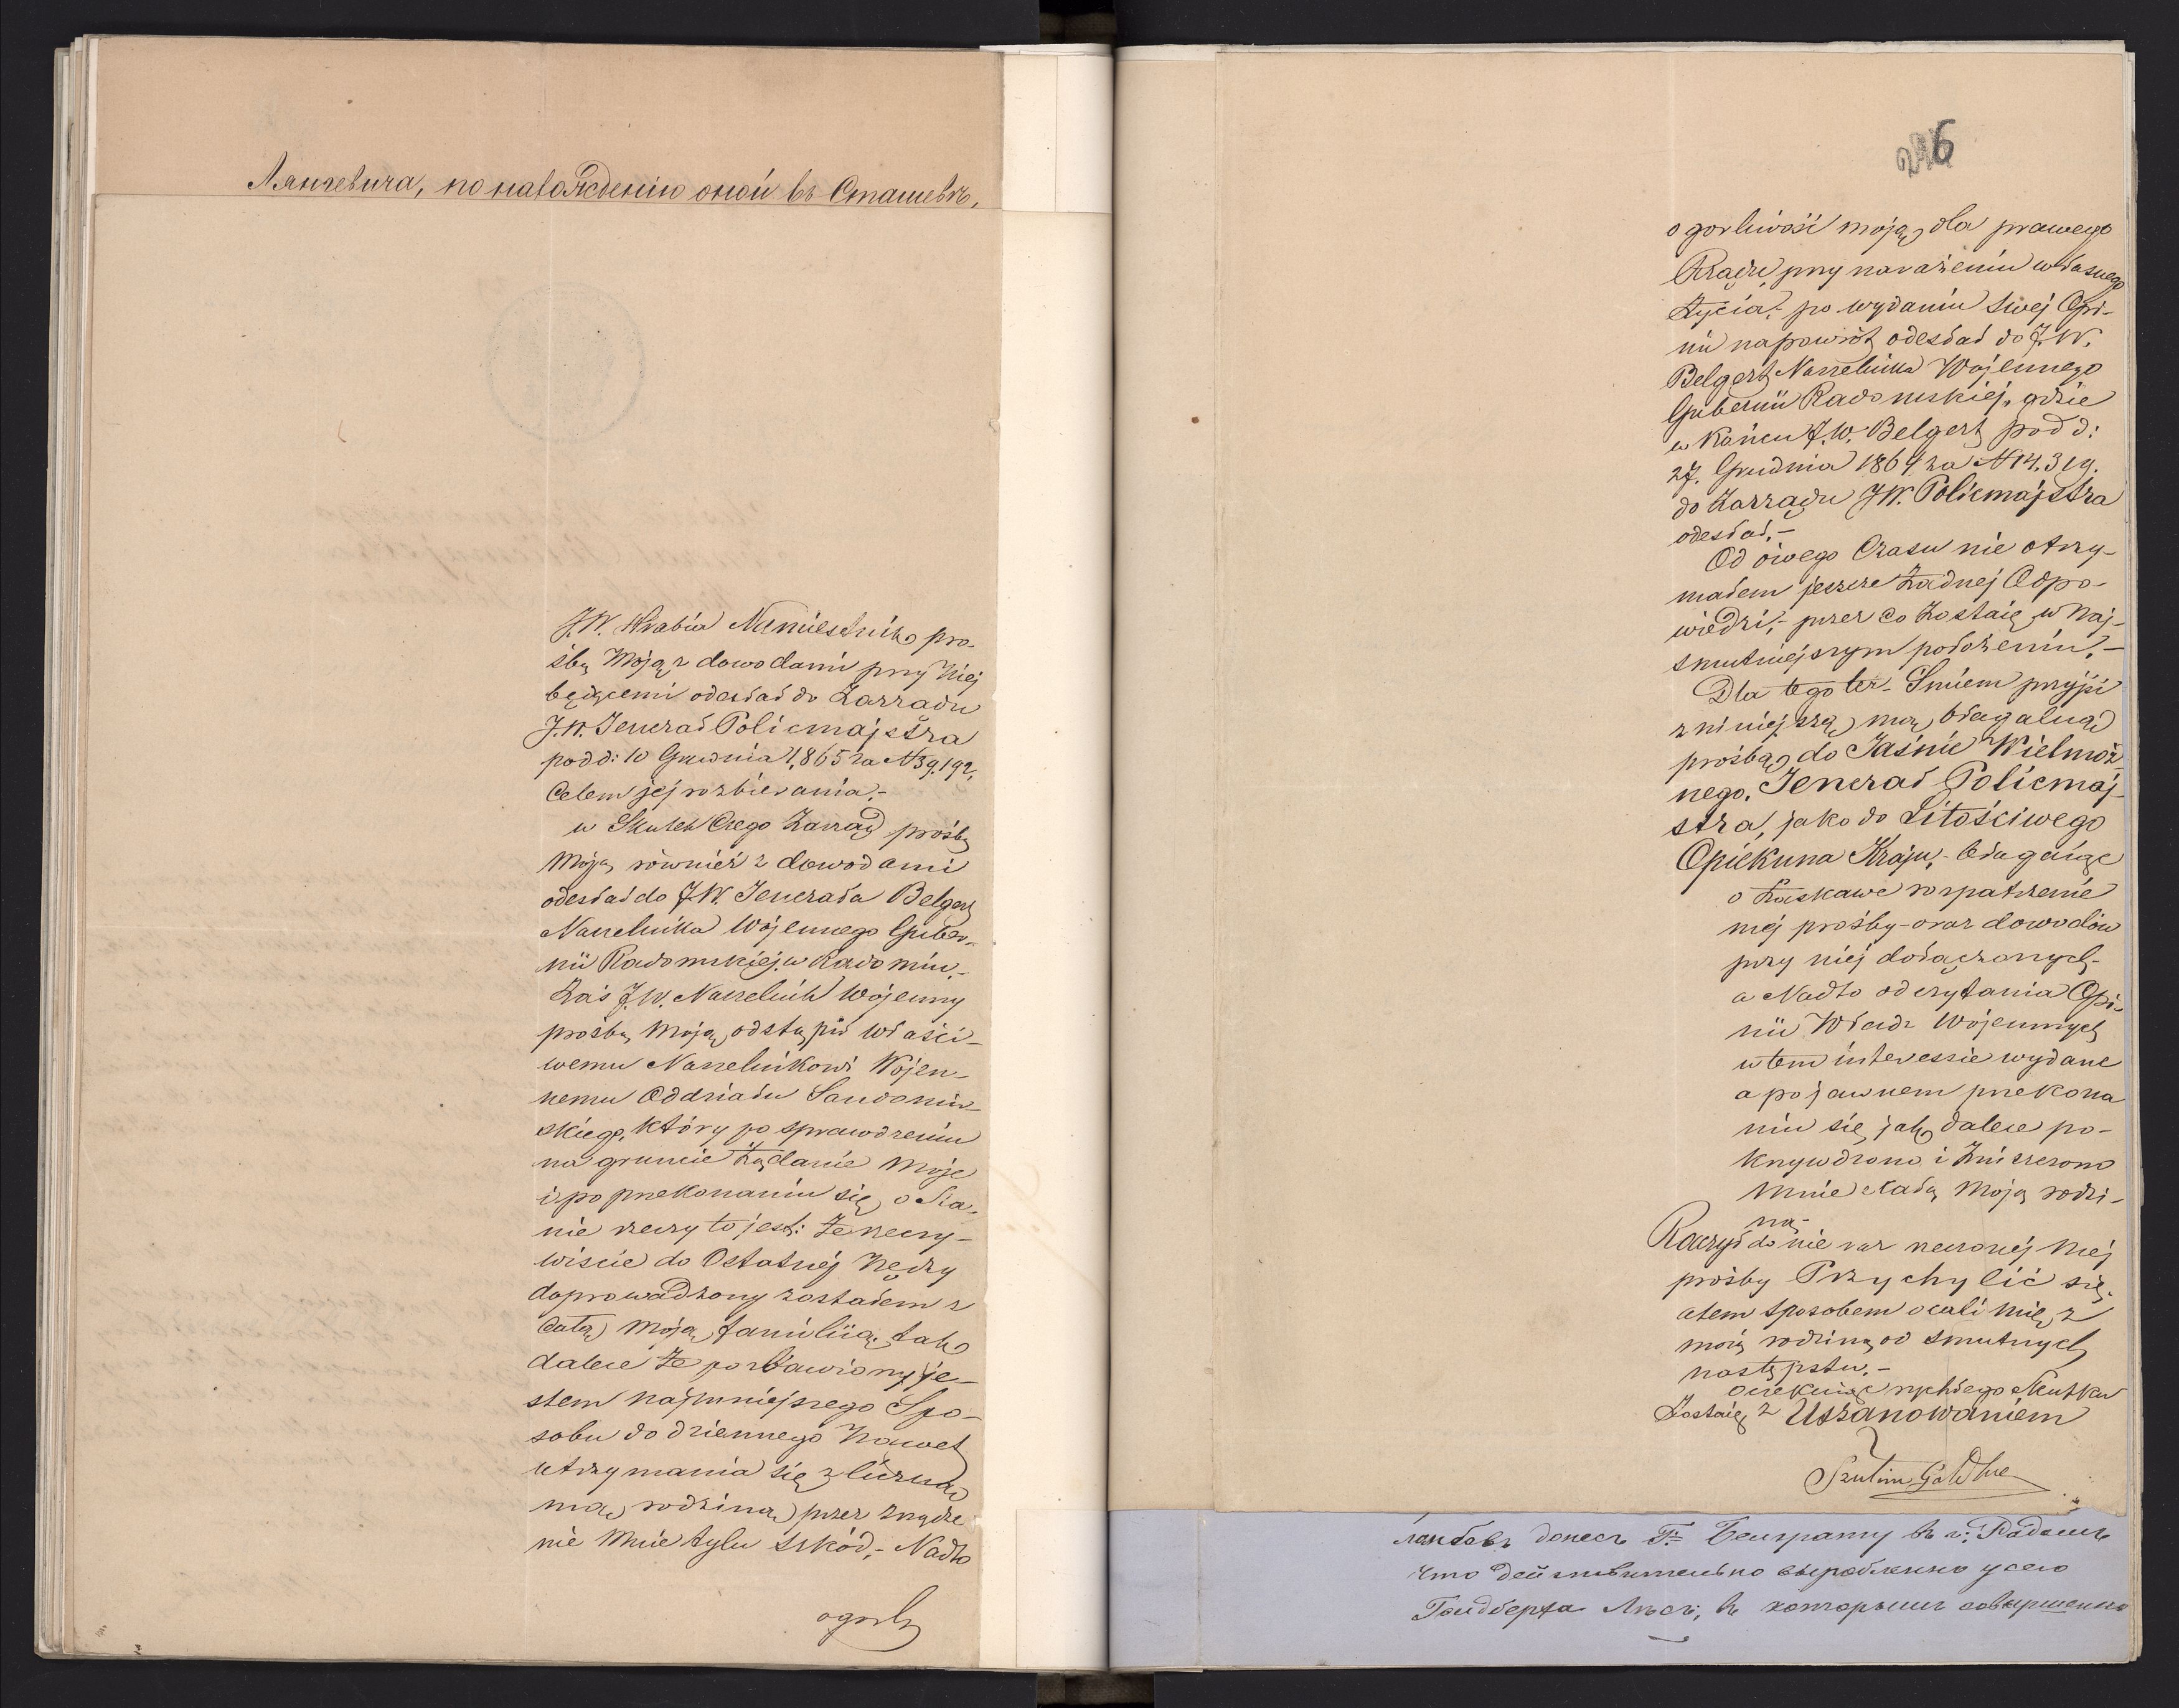 Лянгевича, по нахождению оной въ Сташевѣ,
J.W. Hrabia Namiestnik pro-
śbę Moją z dowodami przy Niej
będącemi odesłał do Zarządu
J.W. Jenerał Policmajstra
pod d: 10 Grudnia 1865 za N 39.192.
Celem jej rozbierania.-
w Skutek Czego Zarząd prośbę
Moją również z dowodami
odesłał do J.W. Jenerała Belgert
Naczelnika Wojennego Guber-
nii Radomskiej w Radomiu.-
Zaś J.W. Naczelnik Wojenny
prośbę Moją odstąpił właści-
wemu Naczelnikowi Wojen-
nemu Oddziału Sandomir-
skiego, który po sprawdzeniu
na gruncie Żądanie Moje
i po przekonaniu się o Sta-
nie rzeczy to jest: Że rzeczy-
wiście do Ostatniej Nędzy
doprowadzony zostałem z
Całą Moją familiią, tak
dalece Że pozbawiony je-
stem najmniejszego Spo-
sobu do dziennego Nawet
utrzymania się z liczną
mą rodziną przez zrządze
nie Mnie tylu szkód,- Nadto
ogorli
26
o gorliwości moją dla prawego
Rządu przy narażeniu własnego
życia,- po wydaniu Swej Opi-
nii napowrót odesłał do J.W.
Belgert Naczelnika Wojennego
Gubernii Radomskiej, gdzie
w Końcu J.W. Belgert pod d:
27. Grudnia 1864 za N 14.319.
do Zarządu J.W. Policmajstra
odesłał.-
Od owego Czasu nie otrzy-
małem jeszcze Żadnej Odpo-
wiedzi,- przez co Zostaię w Naj-
smutniejszym położeniu.-
Dla tego też- Śmiem przyjść
z niniejszą mą błagalną
prośbą do Jaśnie Wielmoż-
nego Jenerał Policmaj-
stra, jako do Litościwego
Opiekuna Kraju,- błagając
o Łaskawe rozpatrzenie
mej prośby- oraz dowodów
przy niej dołączonych-
a Nadto odczytania Opi-
nii Władz Wojennych
w tem interessie wydane
a po jawnem przekona
niu się jak dalece po-
krzywdzono i Zniszczono
Mnie i całą Moją rodzi-
nę-
Raczył do nie raz rzeczonej Mej
prośby Przychylić się,
a tem sposobem ocali mię z
moią rodziną od smutnych
następstw.-
Oczekuiąc rychłego Skutku
Zostaię z Uszanowaniem
Szulim Goldber
донесъ Г= Бельгарту въ г: Радомъ
что действительно вырублено у сего
Гольдберга Лѣсъ, въ которомъ совершенно